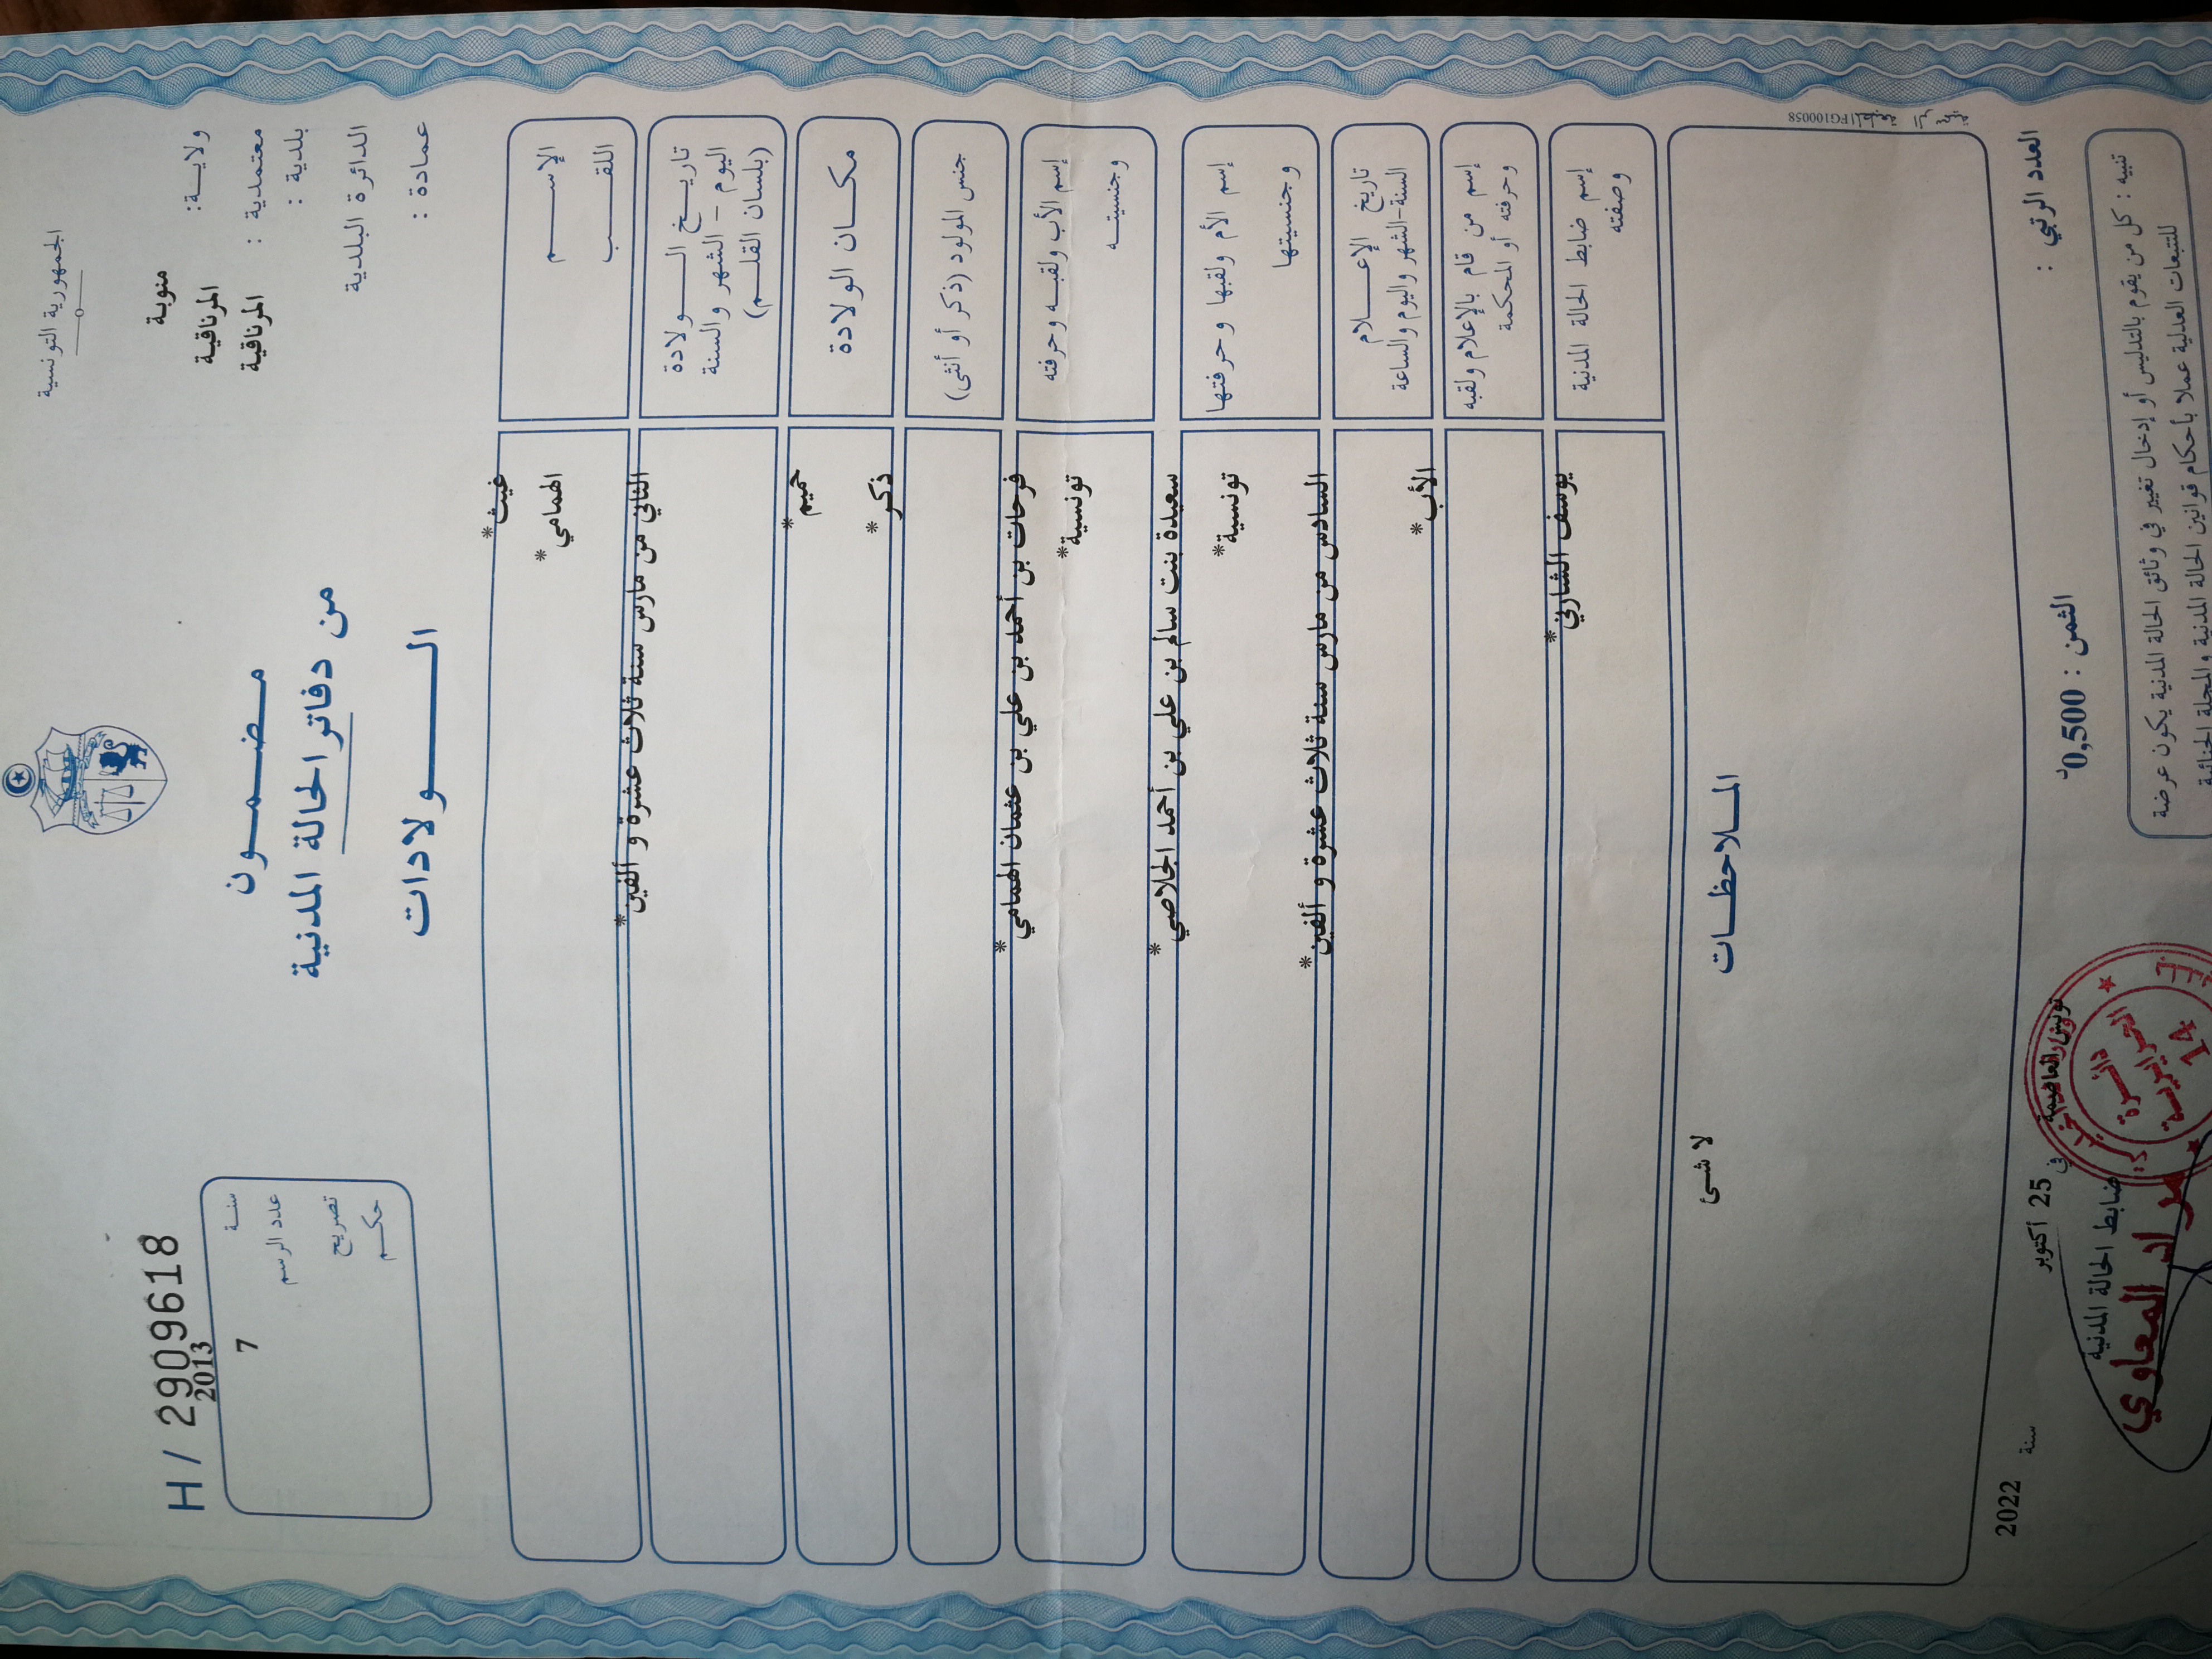 الجمهورية التونسية
H / 2909618
ولايــة:
منوبة
معتمدية :
المرناقية
بلدية :
المرناقية
الدائرة البلدية
عمادة :
مـضـمـون
من دفاتر الحالة المدنية
الـولادات
سنـة
2013
عدد الرسم
7
تصريح
حكـم
الإســم
غيث*
اللقــب
الهمامي*
تاريـخ الــولادة
اليوم - الشهر والسنة
(بلسان القلـم)
الثاني من مارس سنة ثلاث عشرة و ألفين*
مكـان الولادة
حميم*
جنس المولود (ذكر أو أنثى)
ذكر*
إسم الأب ولقبـه وحرفته
فرحات بن أحمد بن علي بن عثمان الهمامي*
وجنسيتـه
تونسية*
إسم الأم ولقبها وحرفتها
سعيدة بنت سالم بن علي بن أحمد الجلاصي*
وجنسيتها
تونسية*
تاريخ الإعــلام
السنة-الشهر واليوم والساعة
السادس من مارس سنة ثلاث عشرة و ألفين*
إسم من قام بالإعلام ولقبه
وحرفته أو المحكمة
الأب*
إسم ضابط الحالة المدنية
وصفته
يوسف الشاربي*
المـلاحظـات
لا شئ
FG100058
العدد الرتبي :
الثمن : 0,500د
تونس العاصمة في 25 أكتوبر سنة 2022
ضابط الحالة المدنية
مراد المعاوي
دائرة
14
تنبيه : كل من يقوم بالتدليس أو إدخال تغيير في وثائق الحالة المدنية يكون عرضة
للتتبعات العدلية عملا بأحكام قوانين الحالة المدنية والمجلة الجنائية